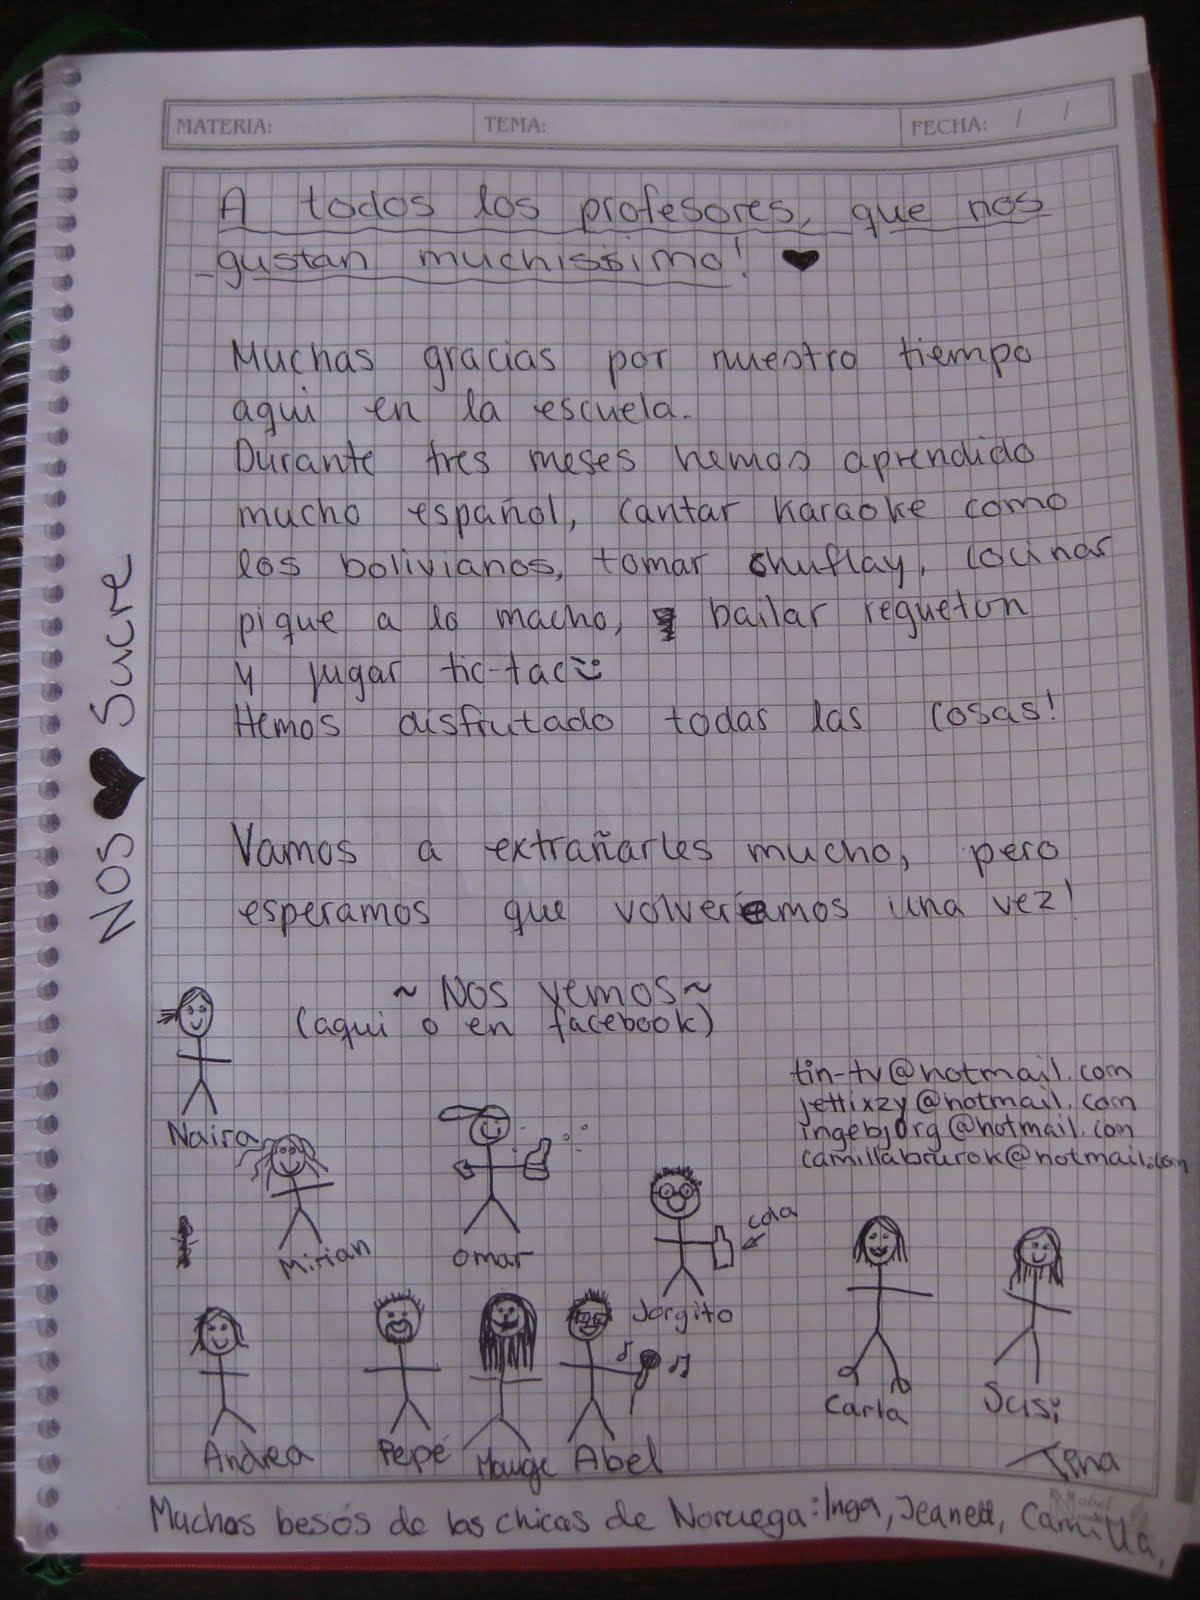 MATERIA: TEMA: FECHA: / /
A todos los profesores, que nos
gustan muchissimo! ♥
Muchas gracias por nuestro tiempo
aqui en la escuela.
Durante tres meses hemos aprendido
mucho español, cantar karaoke como
los bolivianos, tomar chuflay, cocinar
pique a lo macho, bailar regueton
y jugar tic-tac
Hemos disfrutado todas las cosas!
Vamos a extrañarles mucho, pero
esperamos que volveremos una vez!
~ Nos vemos ~
(aqui o en facebook)
NOS ♥ Sucre
tin-tv@hotmail.com
jettixzy@hotmail.com
ingebjorg@hotmail.com
camillabrurok@hotmail.com
Naira
Mirian
Omar
cola
Jorgito
Carla
Susi
Andrea
Pepe
Abel
Muchas besos de las chicas de Noruega: Inga, Jeanett, Camilla,